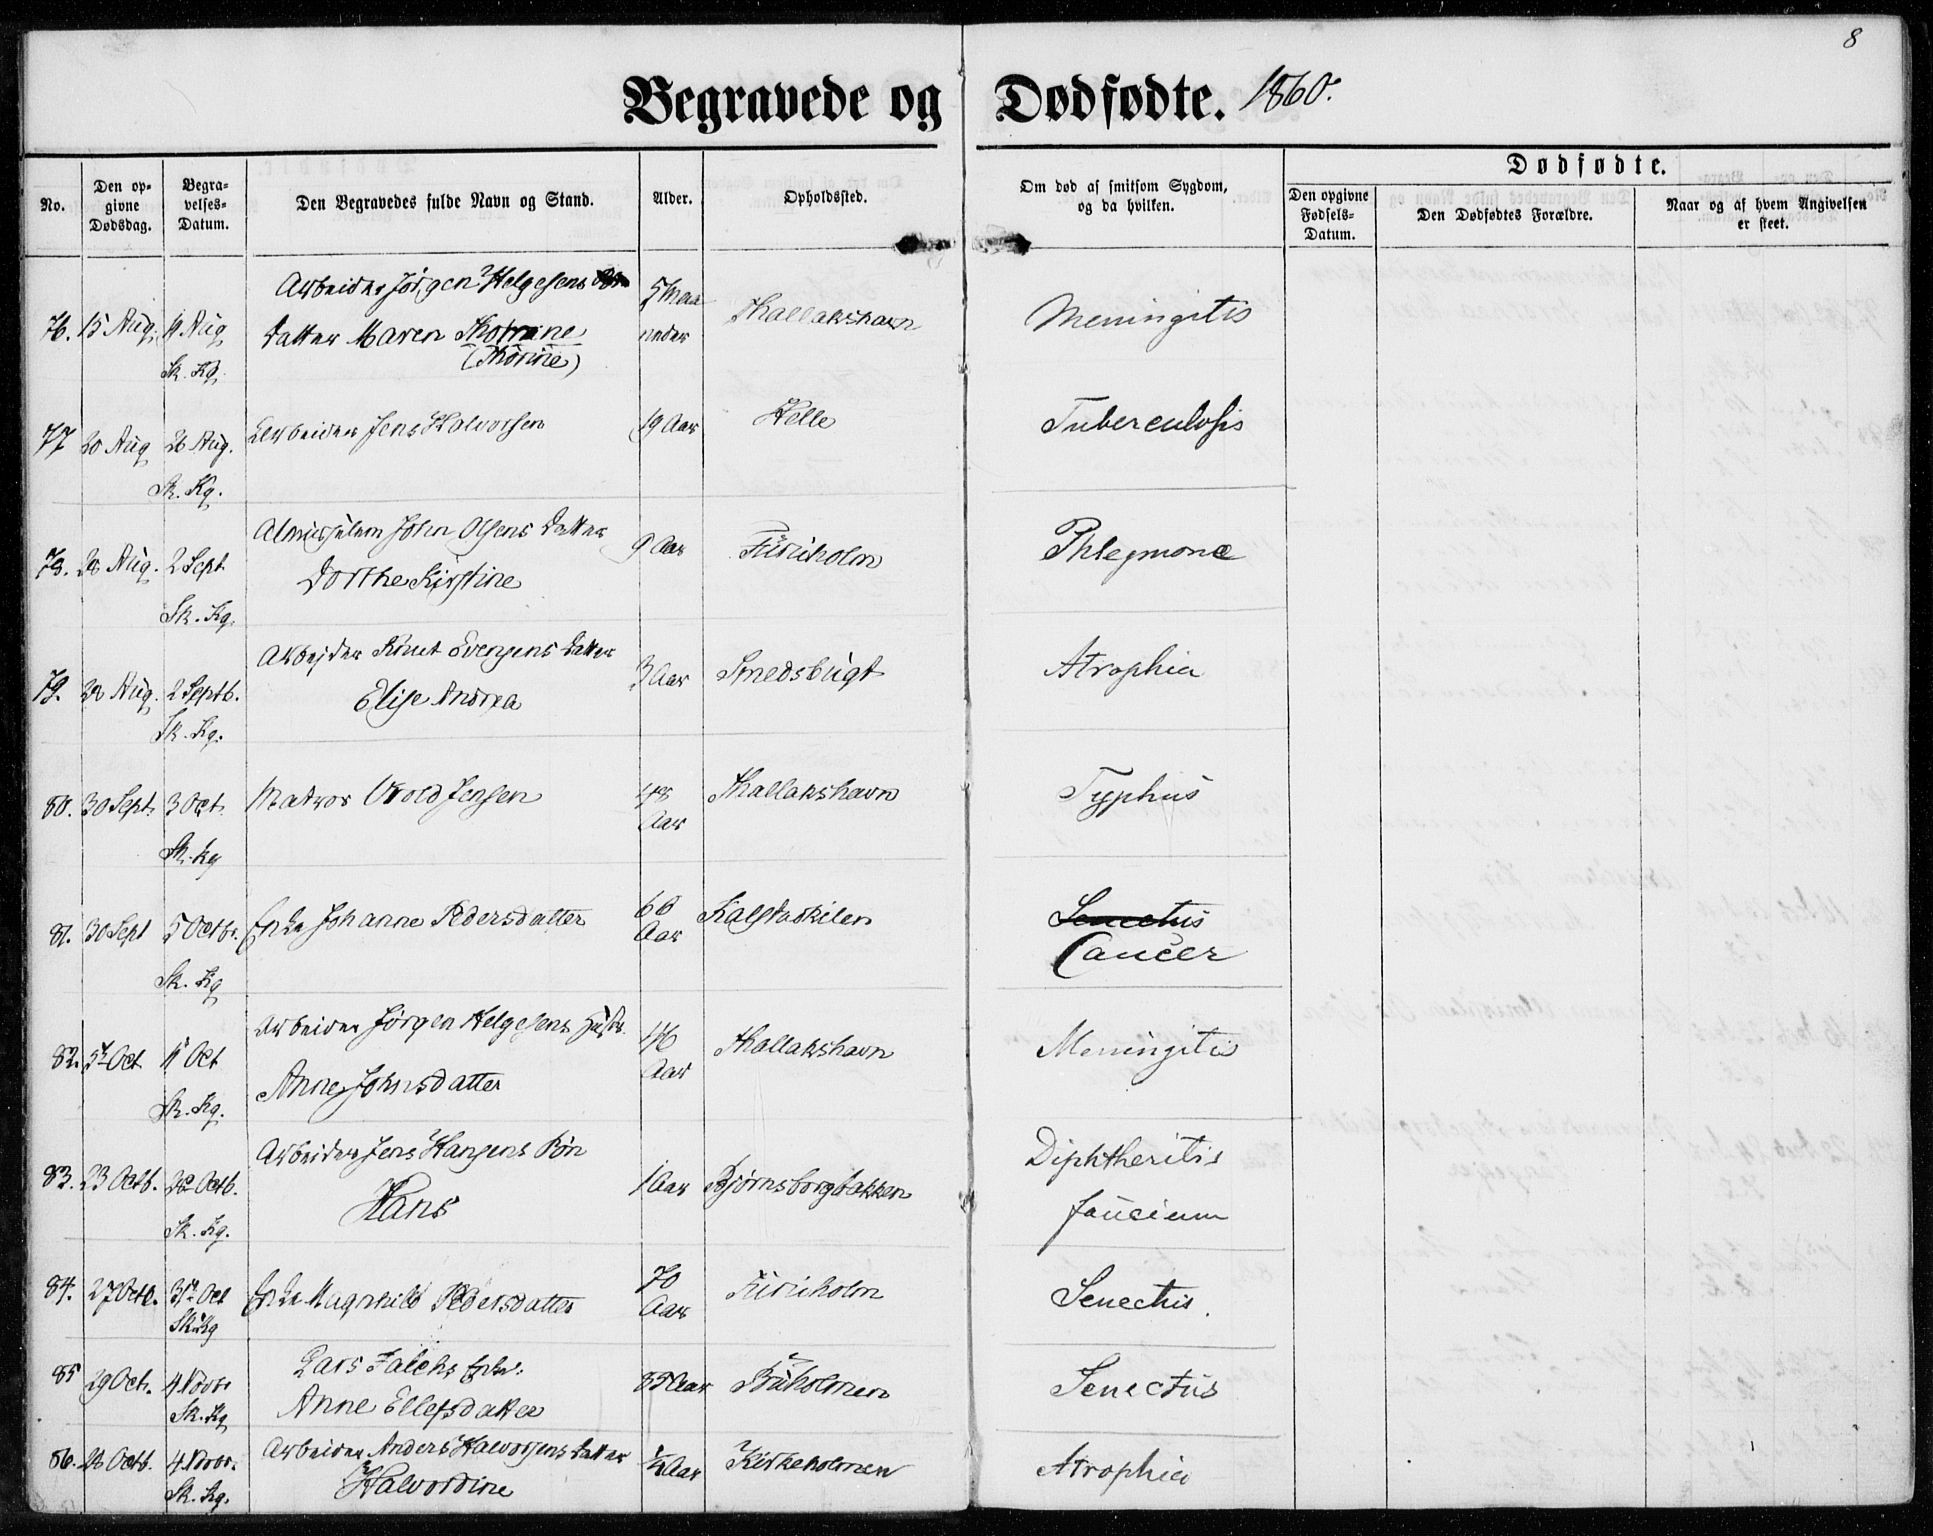 8
Begravede og Dødfødte. 1860.
No.
Den op-
givne
Dødsdag.
Begra-
velses-
Datum.
Den Begravedes fulde Navn og Stand.
Alder.
Opholdssted.
Om død af smitsom Sygdom,
og da hvilken.
Dødfødte.
Den opgivne
Fødsels-
Datum.
Den Dødfødtes Forældre.
Naar og af hvem Angivelsen
er skeet.
Arbeider Jörgen Helgesens
76. 15 Aug. Aug Datter Maren 5 Maa
neder Thallakshavn Meningitis
Sk. Kg. (Thorine)
77 20 Aug 26 Aug. Arbeider Jens Halvorsen 19 Aar Helle Tuberculosis
Sk. Kg.
Almuslem John Olsens Datter
78. 28 Aug. 2 Sept Dorthe Kirstine 9 Aar Furuholm Phlegmone
Sk. Kg.
Arbejder Knut Evensens Datter
79. 28 Aug. 2 Septb. Elise Andrea 3 Aar Smedsbugt Atrophia
Sk. Kg.
80. 30 Sept. 3 Oct. Matros Jensen 48
Aar Thallakshavn Typhus
Sk. Kg
81. 30 Sept 5 Octbr. Enke Johanne Pedersdatter 66
Aar Kalstadkilen Senectus
Cancer
Sk. Kg
Arbeider Jörgen Helgesens Hustr.
82. 5te Oct 11 Oct Anne Johnsdatter 46
Aar Thallakshavn Meningitis
Sk. Kg.
Arbeider Jens Hansens Søn
83. 23 Octb. 28 Octb. Hans 1 Aar Bjørnsborgbakken Diphtheritis
faucium
Sk. Kg.
84. 27 Octb. 31te Oct Enke Magnhild Pedersdatter 70
Aar Furuholm Senectus.
Sk. Kg
Lars Falchs Enke:
85 29 Oct. 4 Novbr Anne Ellefsdatter 85 Aar Buholmen Senectus
Sk. Kg
Arbeider Anders Halvorsens Datter
86. 28 Octb. 4 Novbr. Halvordine ½ Aar Kirkeholmen Atrophia
Sk. Kg.